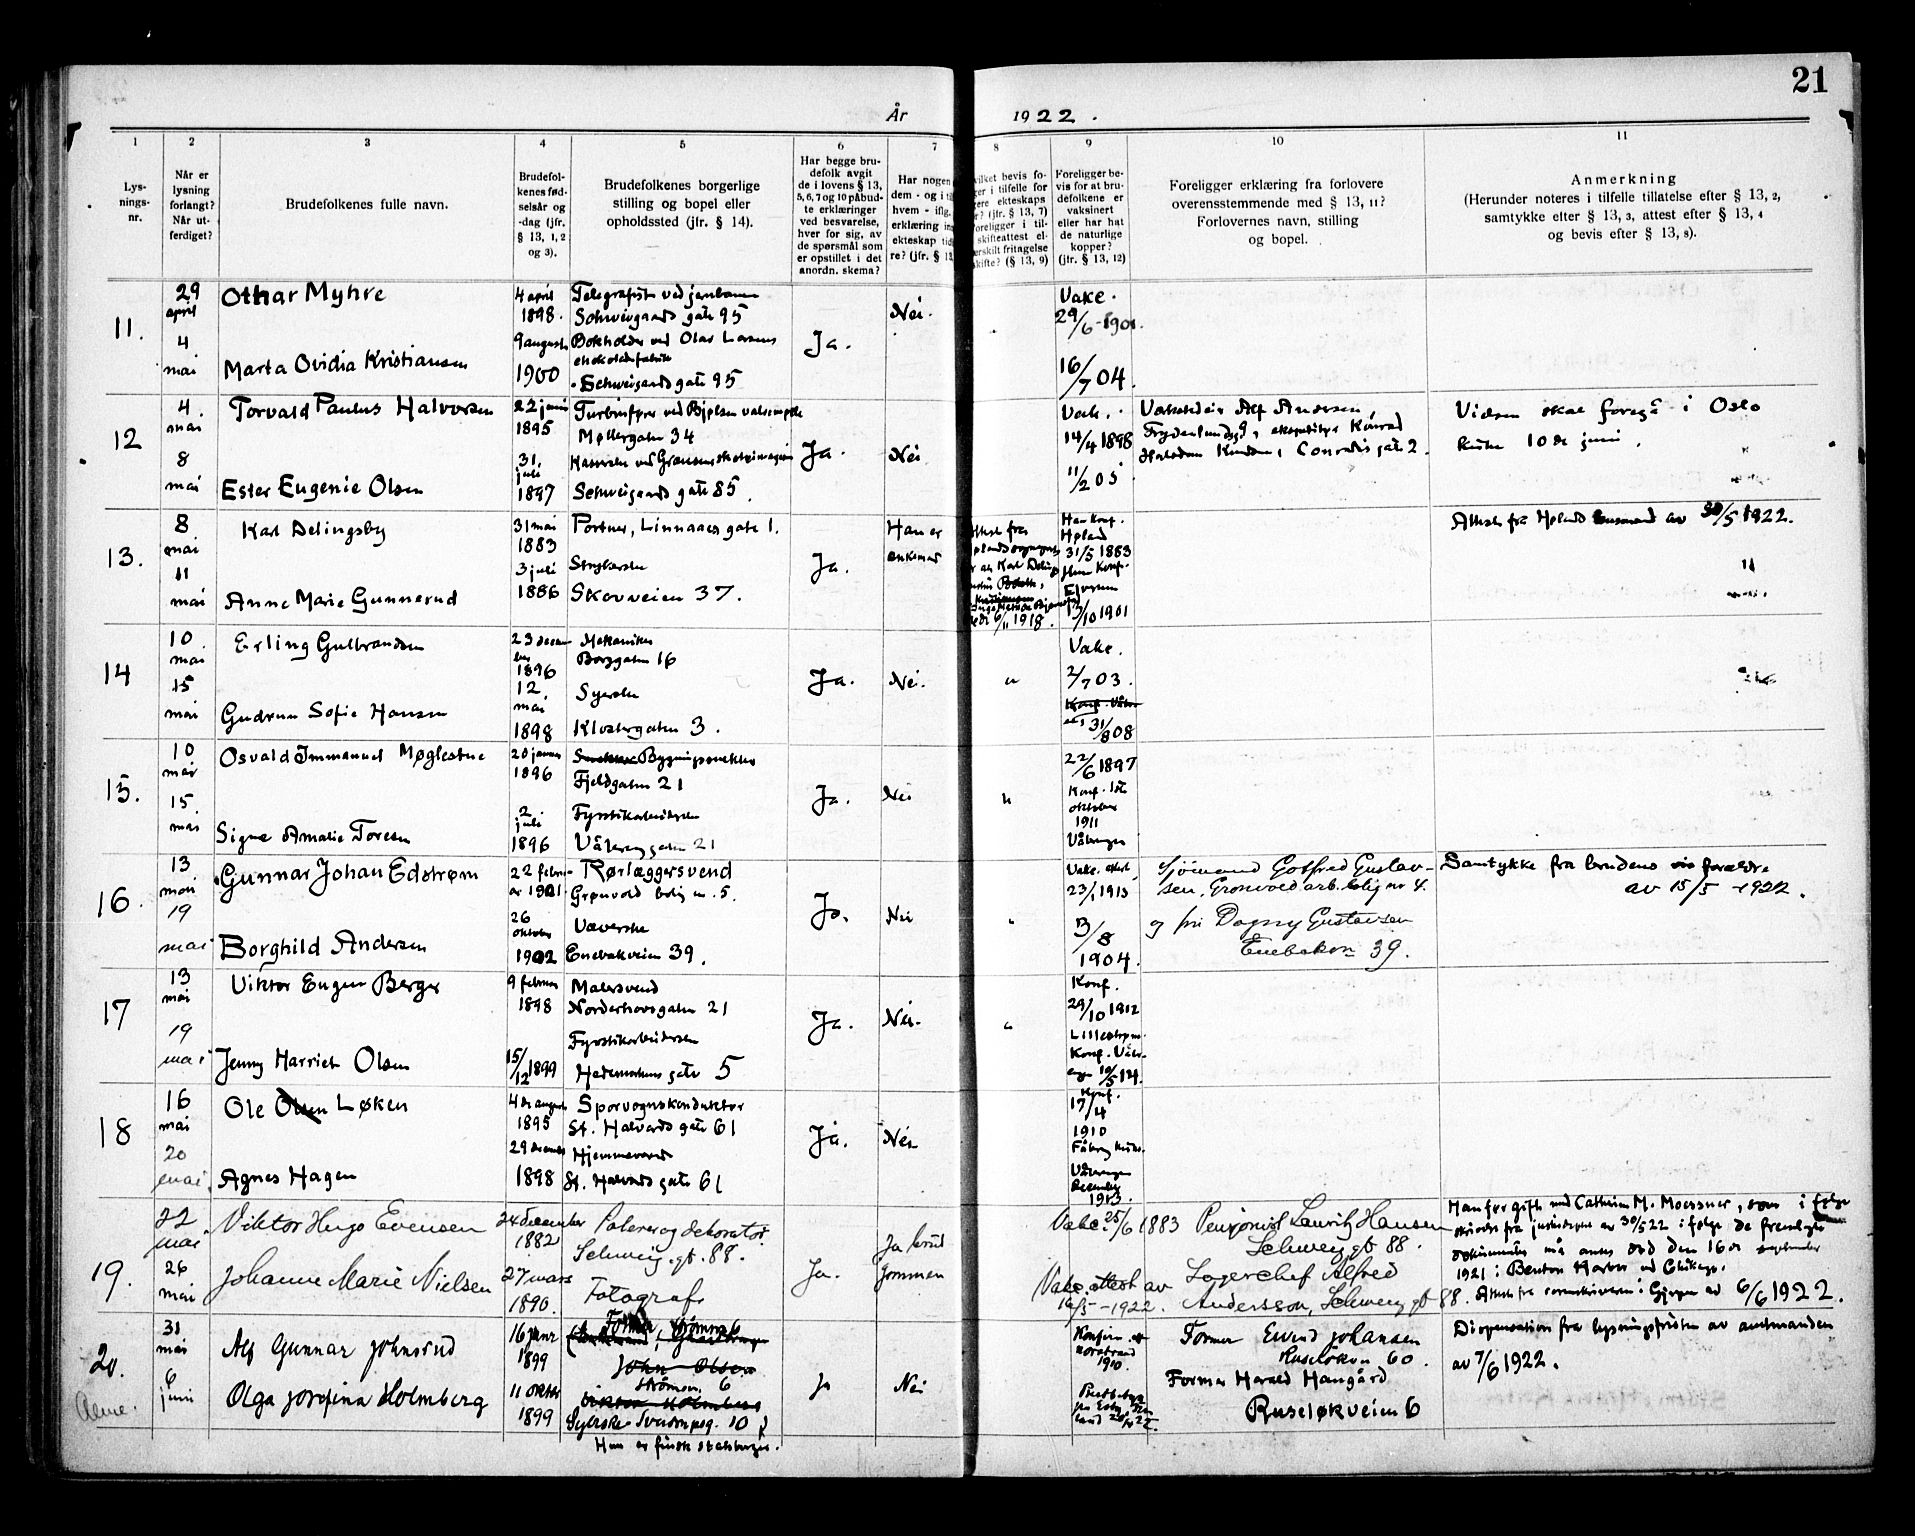 21
År 1922.
1
Lys-
nings-
nr.
2
Når er
lysning
forlangt?
Når ut-
ferdiget?
3
Brudefolkenes fulle navn.
4
Brudefol-
kenes fød-
selsår og
-dag (jfr.
§ 13, 1, 2
og 3).
5
Brudefolkenes borgerlige
stilling og bopel eller
opholdssted (jfr. § 14).
6
Har begge bru-
defolk avgit
de i lovens § 13,
5, 6, 7 og 10 påbud-
te erklæringer
ved besvarelse,
hver for sig, av
de spørsmål som
er opstillet i det
anordn. skema?
7
Har nogen
dem - og i ti
hvem - ifig.
erklæring in
ekteskap tid
re? (jfr. § 13
8
vilket bevis fo-
ger i tilfelle for
ere ekteskaps
r? (jfr. § 13, 7)
oreligger i til-
skifteattest el-
erskilt fritagelse
skifte? (§ 13, 9)
9
Foreligger be-
vis for at bru-
defolkene er
vaksinert
eller har hat
de naturlige
kopper?
(jfr. § 13, 12)
10
Foreligger erklæring fra forlovere
overensstemmende med § 13, 11?
Forlovernes navn, stilling
og bopel.
11
Anmerkning
(Herunder noteres i tilfelle tillatelse efter § 13, 2,
samtykke efter § 13, 3, attest efter § 13, 4
og bevis efter § 13, 8).
11.
29
april
4
mai
Othar Myhre
Marta Ovidia Kristiansen
4 april
1898.
9 august
1900
Telegrafist ved jernbanen
Schweigaards gate 95
Bokholder ved Olav Larsens
chokoladefabrik
Schweigaards gate 95
Ja.
Nei.
Vakc.
29/6-1901.
16/7 04.
12
4.
mai
8
mai
Torvald Paulus Halvorsen
Ester Eugenie Olsen
22 juni
1895
31.
juli
1897
Turbinfyrer ved Bjølsen valsemølle
Møllergaten 34
Schweigaards gate 85.
Ja.
Nei.
Vakc.
14/4 1898
11/2 05
Alf Andersen,
Conradis gate 2.
Vielsen skal foregå i Oslo
kirke 10de juni.
13.
8
mai
11
mai
Karl Delingsby
Anne Marie Gunnerud
31 mai
1883
3 juli
1886
Portner, Linnaaes gate 1.
Strykerske
Skovveien 37.
Ja.
Han er
enkemand
6/11 1918.
Han konf.
Høland
31/5 1883
Hun konf.
13/10 1901
Attest fra Høland av 30/5 1922.
14
10.
mai
15
mai
Erling Gulbrandsen
Gudrun Sofie Hansen
23 decem
ber
1896
12.
mai
1898
Mekaniker
Borggaten 16
Syerske
Klostergaten 3.
Ja.
Nei.
"
Vakc.
2/7 03.
31/8 08
15.
10
mai
15.
mai
Osvald Immanuel Møglestue
Signe Amalie Toresen
20 januar
1896
2
juli
1896
Bygningssnekker
Fjeldgaten 21
Fyrstikarbeiderske
Vålerenggaten 21
Ja.
Nei
"
22/6 1897
Konf. 1ste
oktober
1911
Vålerengen
16.
13
mai
19
mai
Gunnar Johan Edstrøm
Borghild Andersen
22 febru-
ar 1901
26
oktober
1902
Rørlæggersvend
Grønvold bolig nr. 5.
Væverske
Enebakveien 39.
Ja.
Nei
"
Vakc. attest,
23/1 1913
3/8
1904.
Sjømand Gotfred Gustav-
sen, Grønvold arb.bolig nr 4.
og fru Dagny Gustavsen
Enebakvn 39.
Samtykke fra brudens forældre
av 15/5 - 1922.
17
13
mai
19
mai
Viktor Eugen Berger
Jenny Harriet Olsen
9 februar
1898
15/12 1899
Malersvend
Norderhovsgaten 21
Fyrstikarbeiderske
Hedemarkens gate 5
Ja.
Nei.
"
Konf.
29/10 1912
Lillestrøm.
Konf. Våler-
engen 10/5 14.
18
16
mai
20
mai.
Ole Olsen Løken
Agnes Hagen
4de august
1895
29 december
1898
Sporvognskonduktør
St. Halvards gate 61
Hjemmeværende
St. Halvards gate 61
Ja.
Nei
Konf.
17/4
1910
Fåberg kirke.
Vålerengen
December
1913.
19.
22
mai
26
mai
Viktor Hugo Evensen
Johanne Marie Nielsen
24 December
1882
27 mars
1890.
Maler og dekoratør
Schweig. gt. 88.
Fotograf.
Ja.
Ja brud
gommen
Vakc. 25/6 1883
Vakc. attest av
16/5 - 1922.
Pensjonist Lauritz Hansen
Schweig gt 88.
Lagerchef Alfred
Andersson, Schweig gt 88.
Han før gift med Cathrine M. Moessner, som i følge
skrivelse fra justisdept av 30/5 22 i følge de fremlagte
dokumenter må antas død den 16de september
1921 i Benton Harbor ved Chikago.
Attest fra sorenskriveren i Gjerpen av 6/6 1922.
20.
31
mai
6
juni
Alf Gunnar Johnsrud
Olga Josefina Holmberg
16 januar
1899
11 oktober
1899
Former, Strømsv 6
John Olsen
Strømsv. 6
Viktor Holmberg
Syerske Tvedtenpsg. 10
Hun er finsk statsborger.
Ja
Nei
1910.
Former Eivind Johansen
Ruseløkvn 60.
Former Harald Haugård
Ruseløkveien 6
Dispensation fra lysningsfristen av amtmanden
av 7/6 1922.